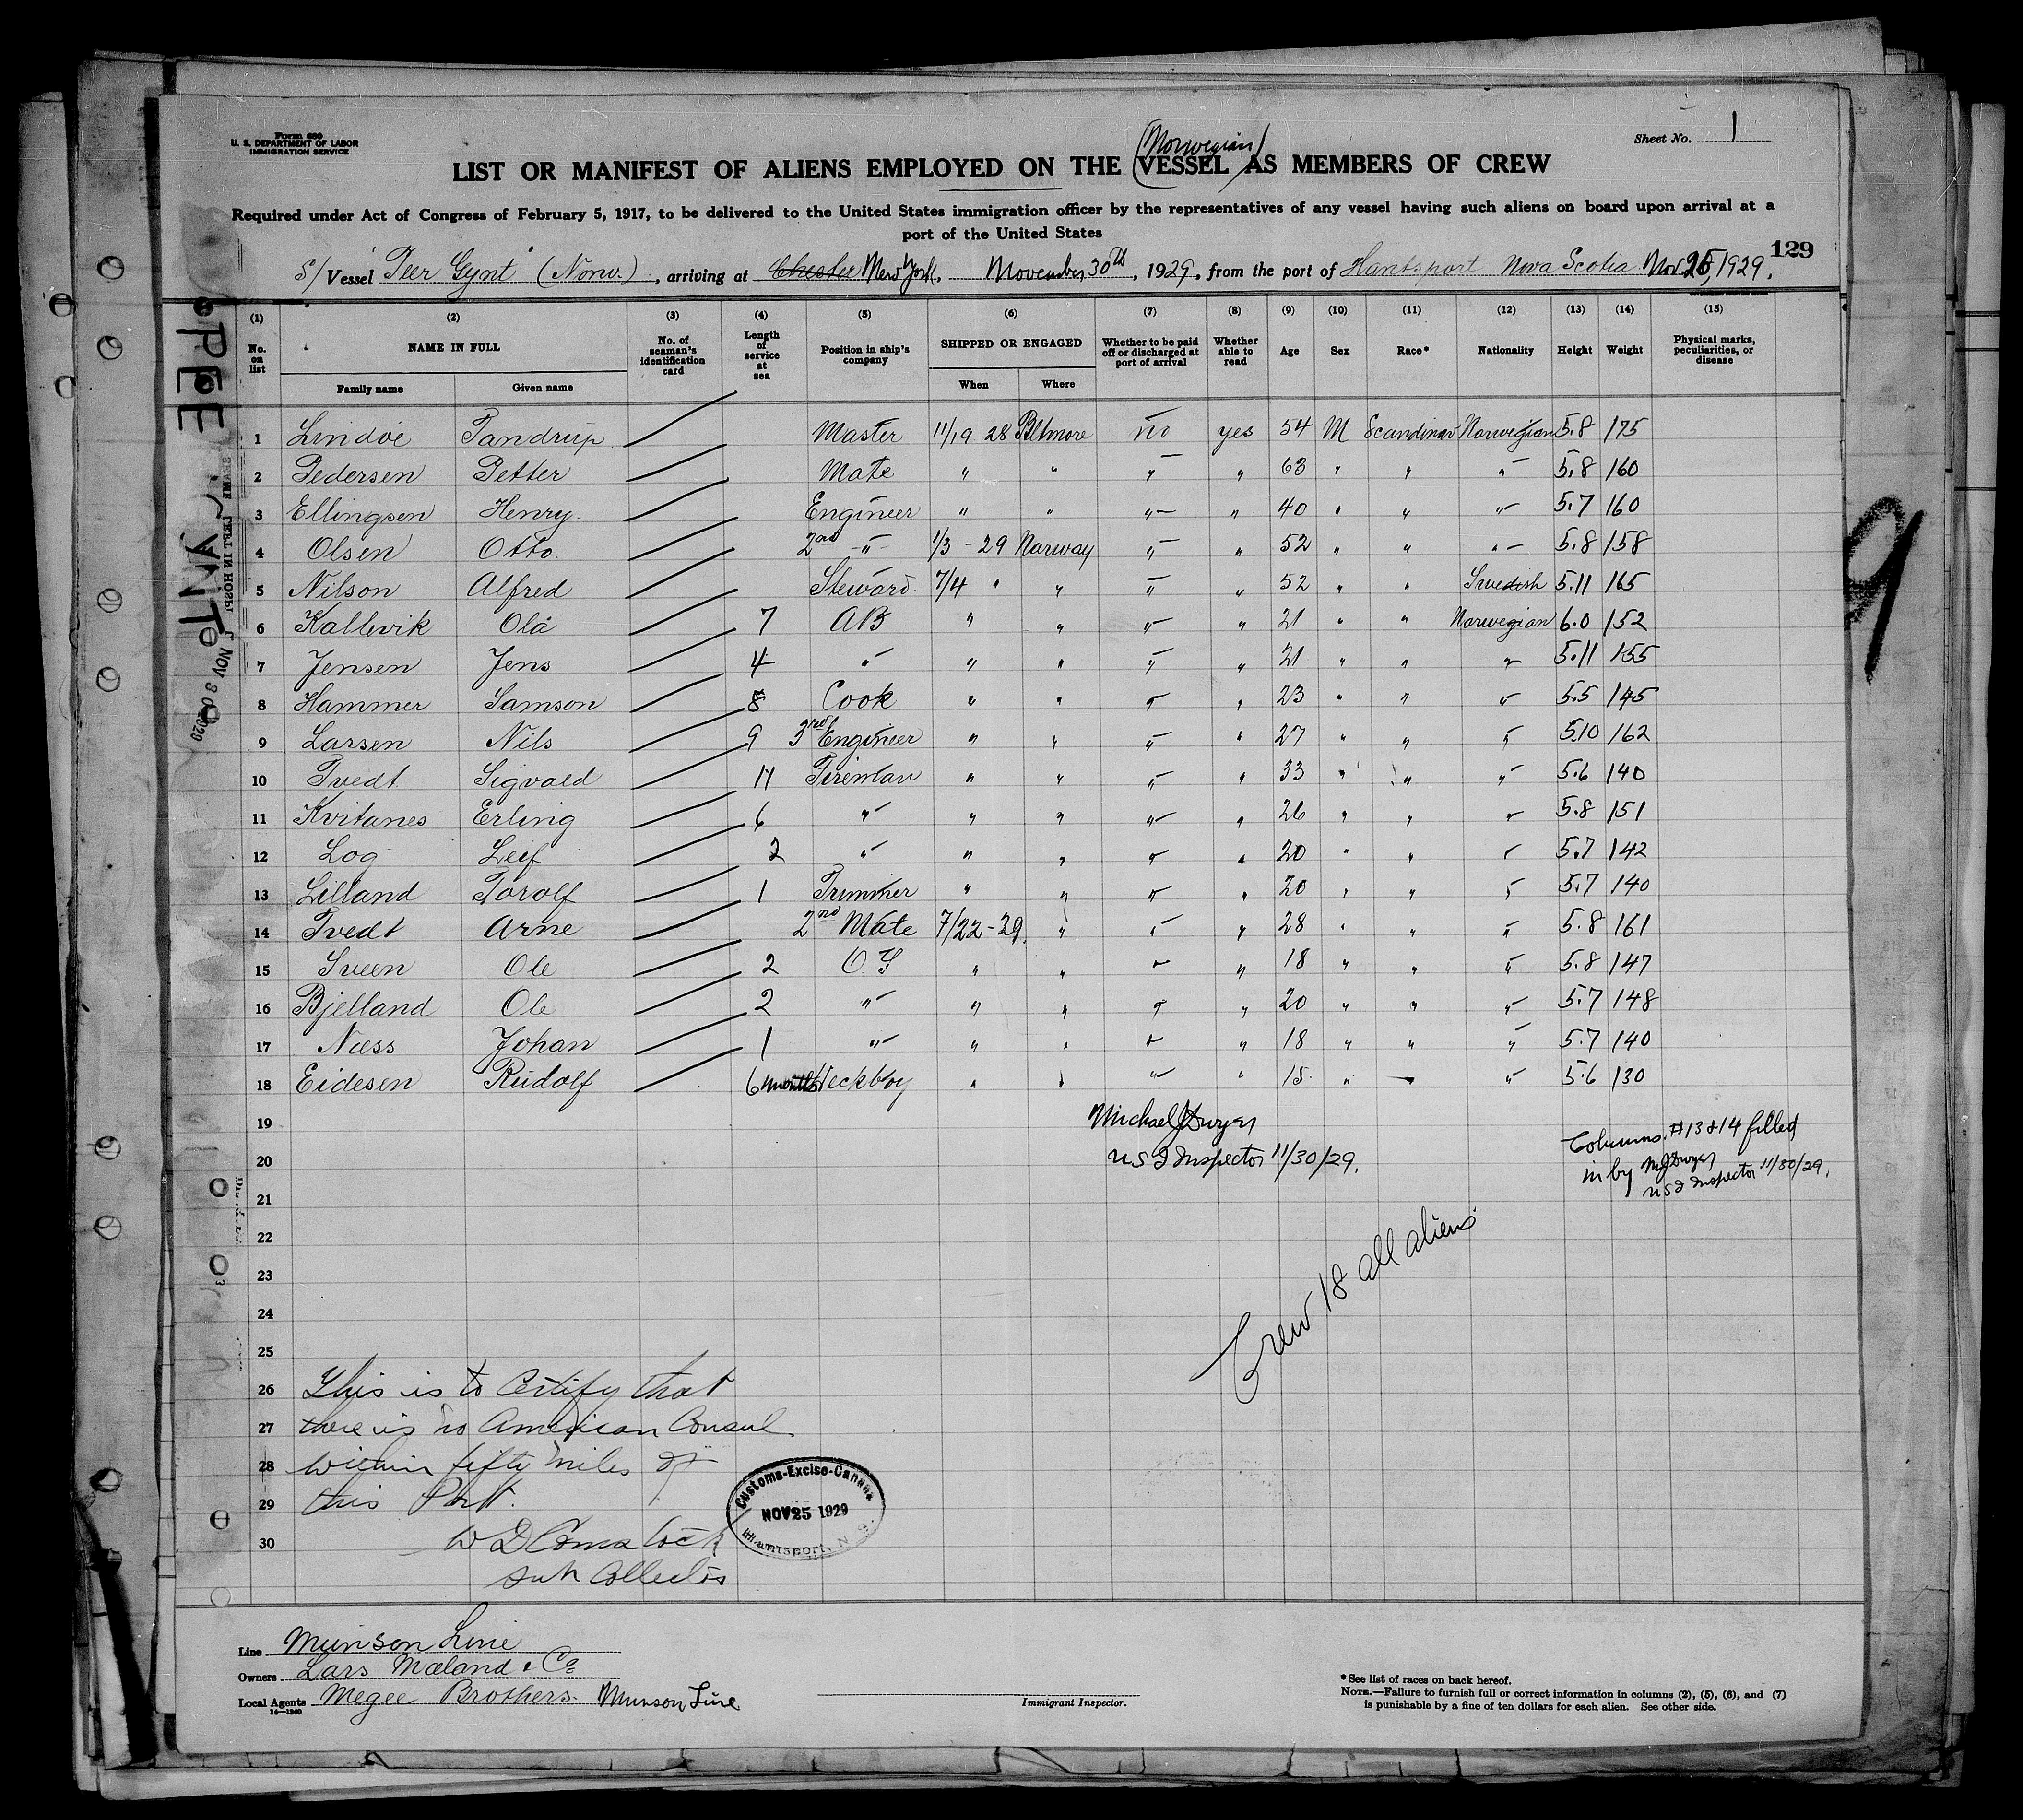 Form 680
U. S. DEPARTMENT OF LABOR
IMMIGRATION SERVICE
Sheet No. 1
(Norwegian)
LIST OR MANIFEST OF ALIENS EMPLOYED ON THE VESSEL AS MEMBERS OF CREW
Required under Act of Congress of February 5, 1917, to be delivered to the United States immigration officer by the representatives of any vessel having such aliens on board upon arrival at a
port of the United States
129
S/ Vessel "Peer Gynt" (Norw.), arriving at Chester New York, November 30th, 1929, from the port of Hantsport Nova Scotia Nov. 25, 1929.
(1) (2) (3) (4) (5) (6) (7) (8) (9) (10) (11) (12) (13) (14) (15)
No. on list NAME IN FULL Family name Given name No. of seaman's identification card Length of service at sea Position in ship's company SHIPPED OR ENGAGED When Where Whether to be paid off or discharged at port of arrival Whether able to read Age Sex Race* Nationality Height Weight Physical marks, peculiarities, or disease
1 Lindöe Tandrup Master 11/19 28 Bltmore no yes 54 M Scandinav Norwegian 5.8 175
2 Pedersen Petter Mate " " " " 63 " " " 5.8 160
3 Ellingsen Henry. Engineer " " " " 40 " " " 5.7 160
4 Olsen Otto. 2nd " 1/3 - 29 Norway " " 52 " " " 5.8 158
5 Nilson Alfred Steward. 7/4 " " " " 52 " " Swedish 5.11 165
6 Kallevik Ola 7 AB " " " " 21 " " Norwegian 6.0 152
7 Jensen Jens 4 " " " " " 21 " " " 5.11 155
8 Hammer Samson 8 Cook " " " " 23 " " " 5.5 145
9 Larsen Nils 9 3rd Engineer " " " " 27 " " " 5.10 162
10 Tvedt Sigvald 11 Fireman " " " " 33 " " " 5.6 140
11 Kvitanes Erling 6 " " " " " 26 " " " 5.8 151
12 Log Leif 2 " " " " " 20 " " " 5.7 142
13 Lilland Torolf 1 Trimmer " " " " 20 " " " 5.7 140
14 Tvedt Arne 2nd Mate 7/22-29. " " " 28 " " " 5.8 161
15 Sveen Ole 2 O S " " " " 18 " " " 5.8 147
16 Bjelland Ole 2 " " " " " 20 " " " 5.7 148
17 Næss Johan 1 " " " " " 18 " " " 5.7 140
18 Eidesen Rudolf 6 months Deckboy " " " " 15 " " " 5.6 130
19 Michael J Dwyer
20 U S I Inspector 11/30/29.
Columns #13 & 14 filled
in by M J Dwyer
U S I Inspector 11/30/29.
21
22
23
24
25
Crew 18 all aliens
26 This is to Certify that
27 there is no American Consul
28 within fifty miles of
29 this Port.
30 W D Comstock
Sub Collector
Customs-Excise-Canada
NOV 25 1929
Hantsport, N. S.
PEER GYNT
NOV 30 1929
9
Line Munson Line
Owners Lars Mæland & Co
Local Agents Megee Brothers. Munson Line
14—1240
Immigrant Inspector.
*See list of races on back hereof.
NOTE.—Failure to furnish full or correct information in columns (2), (5), (6), and (7)
is punishable by a fine of ten dollars for each alien. See other side.